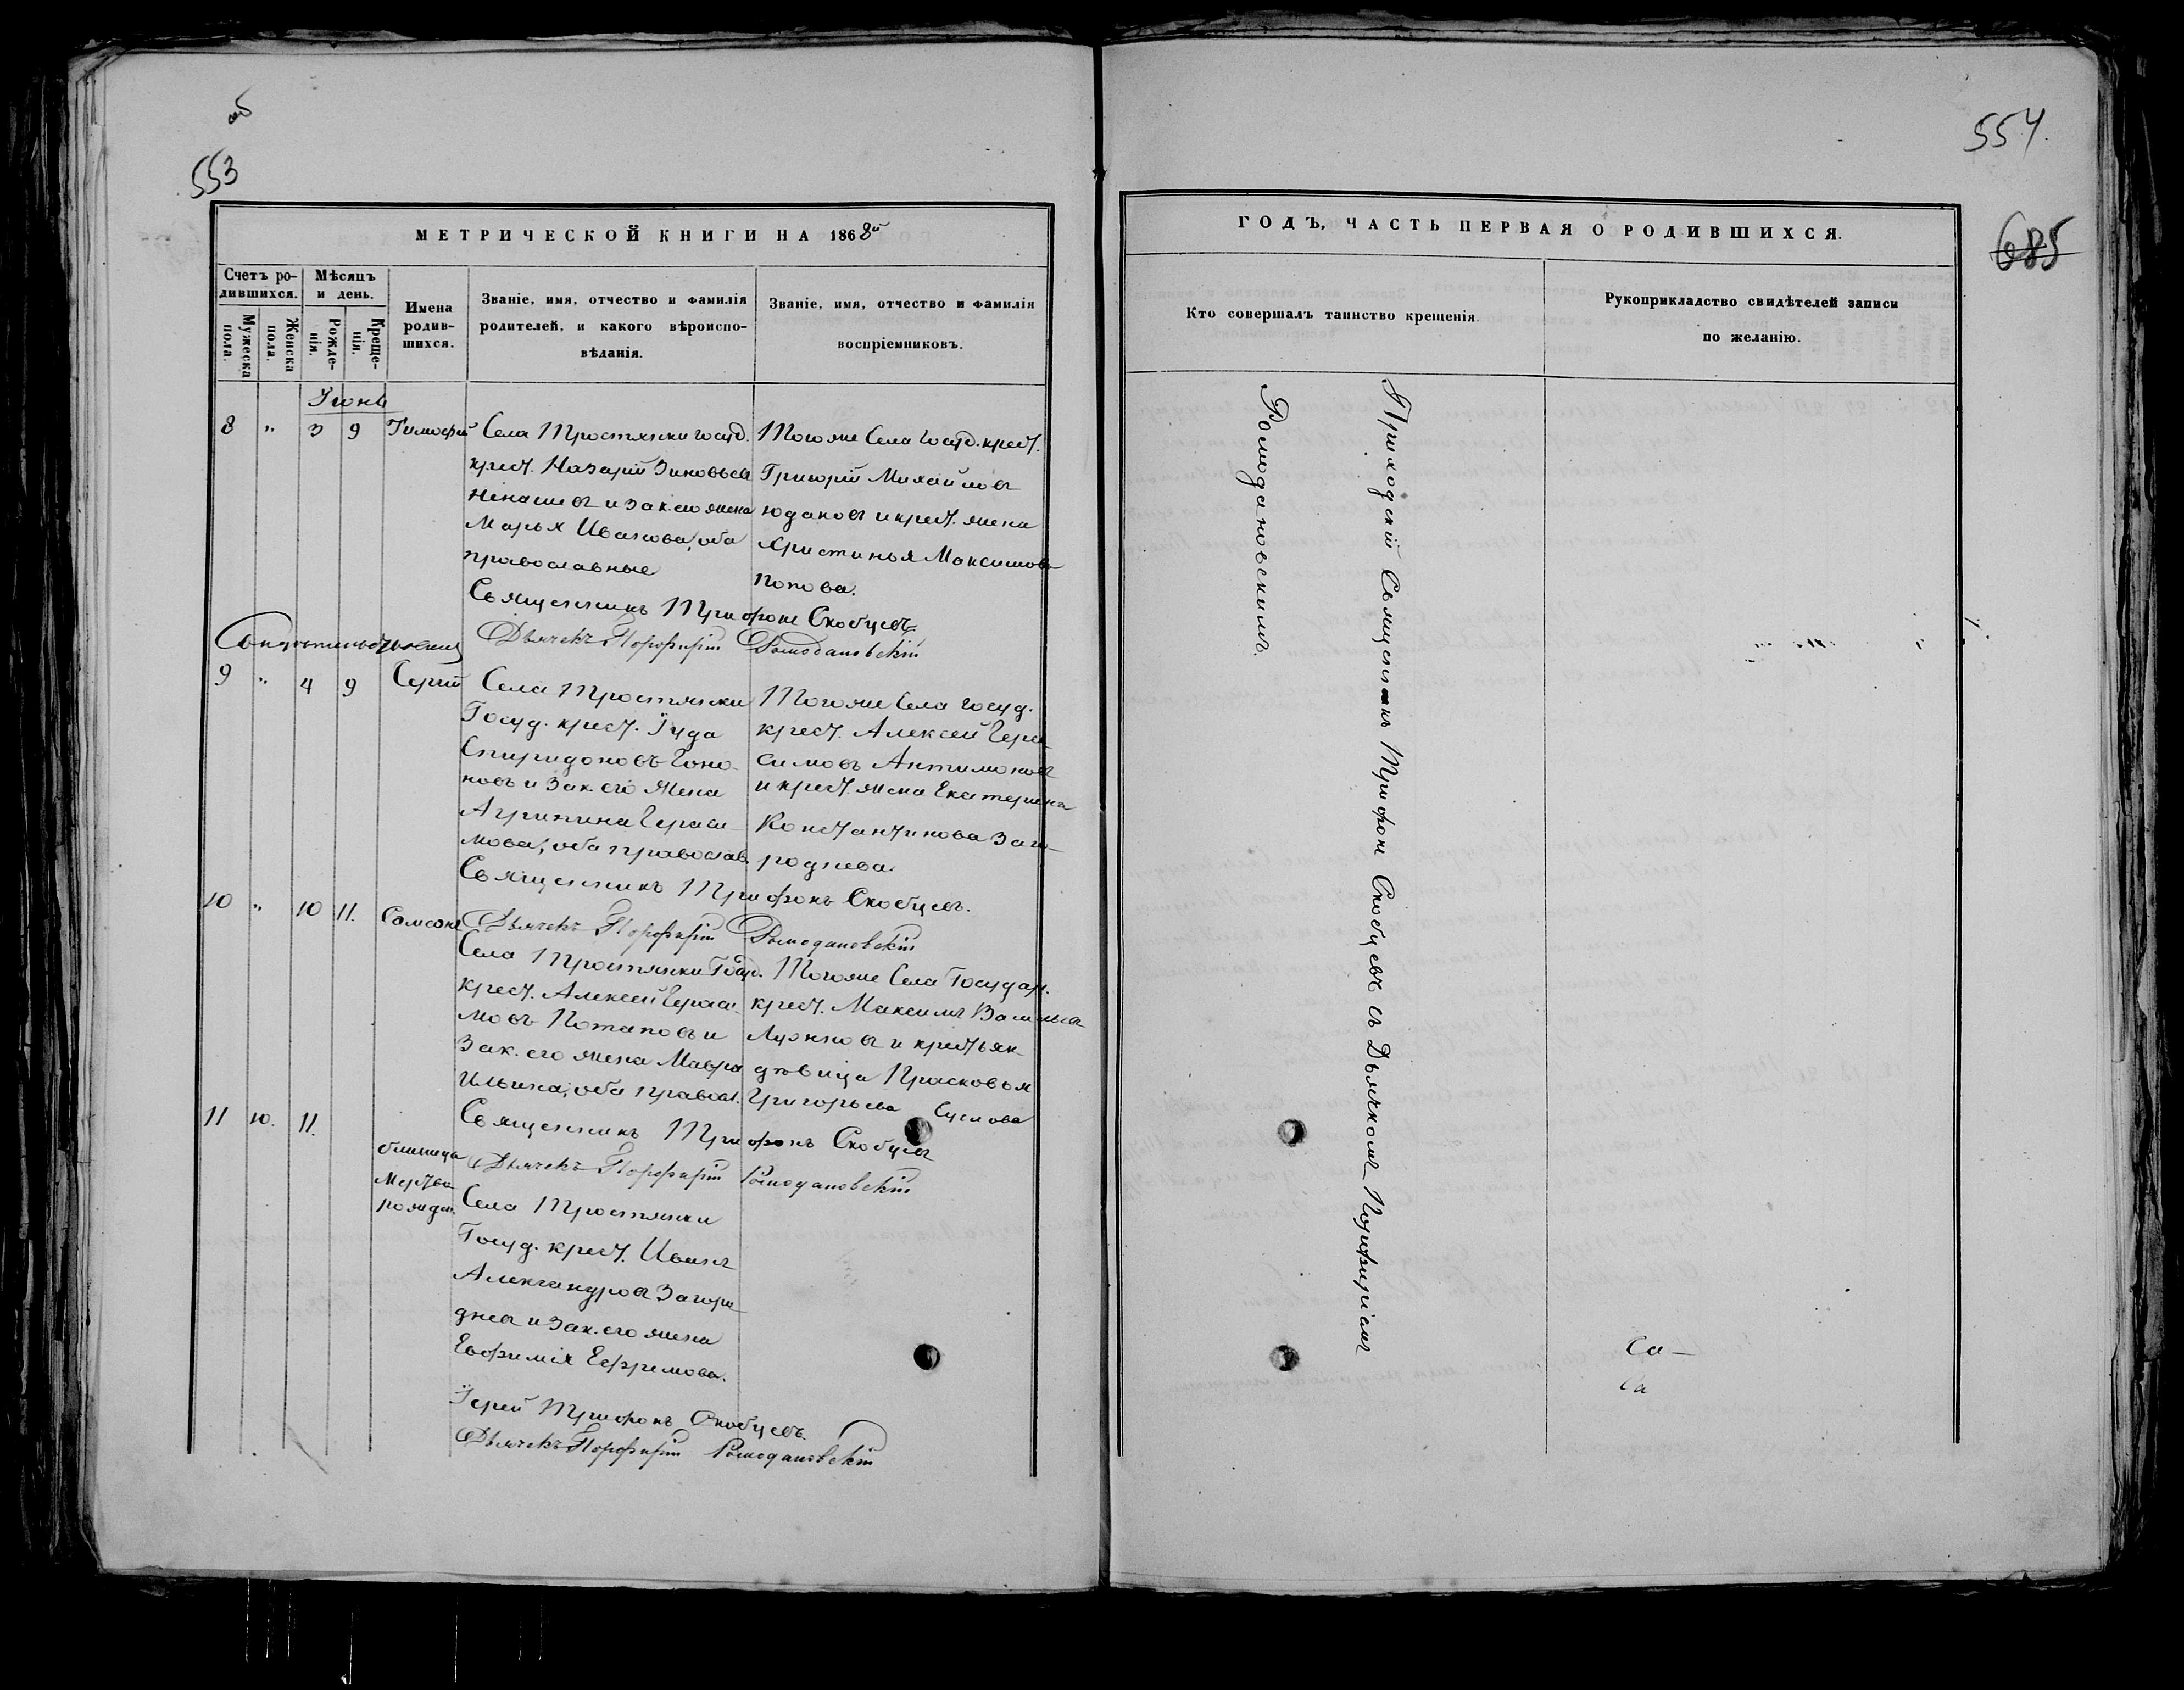 553
554
685
МЕТРИЧЕСКОЙ КНИГИ НА 1868й
Счетъ ро-
дившихся.
Мужеска
пола.
Женска
пола.
Мѣсяцъ
и день.
Рожде-
нія.
Креще-
нія.
Имена
родив-
шихся.
Званіе, имя, отчество и фамилія
родителей, и какого вѣроиспо-
вѣданія.
Званіе, имя, отчество и фамилія
воспріемниковъ.
Іюнь
8 " 3 9 Тимофей
Села Тростянки госуд.
крест. Назарій Зиновьевъ
Ненашевъ и зак. его жена
Марья Иванова, оба
православные
Тогоже Села госуд. крест.
Григорій Михайловъ
Юдаковъ и крест. жена
Христинья Максимова
Попова.
Священникъ Трифонъ Скобцевъ
Дьячекъ Порфирій Ромодановскій
9 " 4 9 Сергій
Села Тростянки
Госуд. крест. Іуда
Спиридоновъ Гоно-
новъ и зак. его жена
Агрипина Гераси-
мова, оба православ.
Тогоже Села госуд.
крест. Алексей Гера-
симовъ Антимоновъ
и крест. жена Екатерина
Константинова Заго-
роднева.
Священникъ Трифонъ Скобцевъ.
Дьячекъ Порфирій Ромодановскій
10 " 10 11. Самсонъ
Села Тростянки Госуд.
крест. Алексей Гераси-
мовъ Потаповъ и
Зак. его жена Мавра
Ильина, оба правосл.
Тогоже Села Государ.
крест. Максимъ Васильевъ
и крестьян.
дѣвица Прасковья
Григорьева Суслова
Священникъ Трифонъ Скобцевъ
Дьячекъ Порфирій Ромодановскій
11 10. 11.
близнеца
мертво
рожден.
Села Тростянки
Госуд. крест. Иванъ
Александровъ Загоро-
дневъ и зак. его жена
Евфимія Ефремова.
Іерей Трифонъ Скобцевъ.
Дьячекъ Порфирій Ромодановскій
ГОДЪ, ЧАСТЬ ПЕРВАЯ О РОДИВШИХСЯ.
Кто совершалъ таинство крещенія.
Рукоприкладство свидѣтелей записи
по желанію.
Приходскій Священникъ Трифонъ Скобцевъ съ Дьячкомъ Порфиріемъ
Ромодановскимъ.
Са-